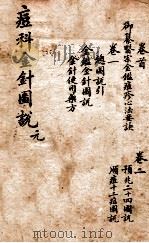 卷首
御纂醫宗金鑑痘疹心法要訣
卷一
總圖說引
金鑑金針圖說
金針使用藥方
卷二
圖說
順痘十二症圖說
痘科金針圖說 元